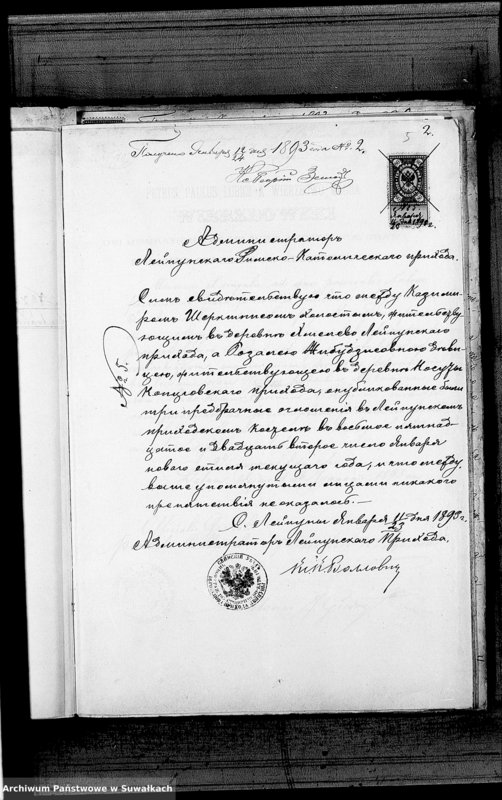 2.
5
Получено Января 12/24 дня 1893 года № 2.
Администраторъ
Лейпунскаго Римско-Католическаго прихода.
Симъ свидѣтельствую что между Казими-
ромъ Шеркшнисомъ холостымъ, жительству-
ющимъ въ деревнѣ Лейпунскаго
прихода, а Розалею дѣви-
цею, жительствующею въ деревнѣ
Копціовскаго прихода, опубликованные были
три предбрачные оглашенія въ Лейпунскомъ
приходскомъ костелѣ въ восьмое пятнад-
цатое и двадцать второе число Января
новаго стиля текущаго года, и что между
выше упомянутыми лицами никакого
препятствія не оказалось.—
С. Лейпуны Января 11/23 дня 1893 г.
Администраторъ Лейпунскаго Прихода.
№ 5.
Archiwum Państwowe w Suwałkach